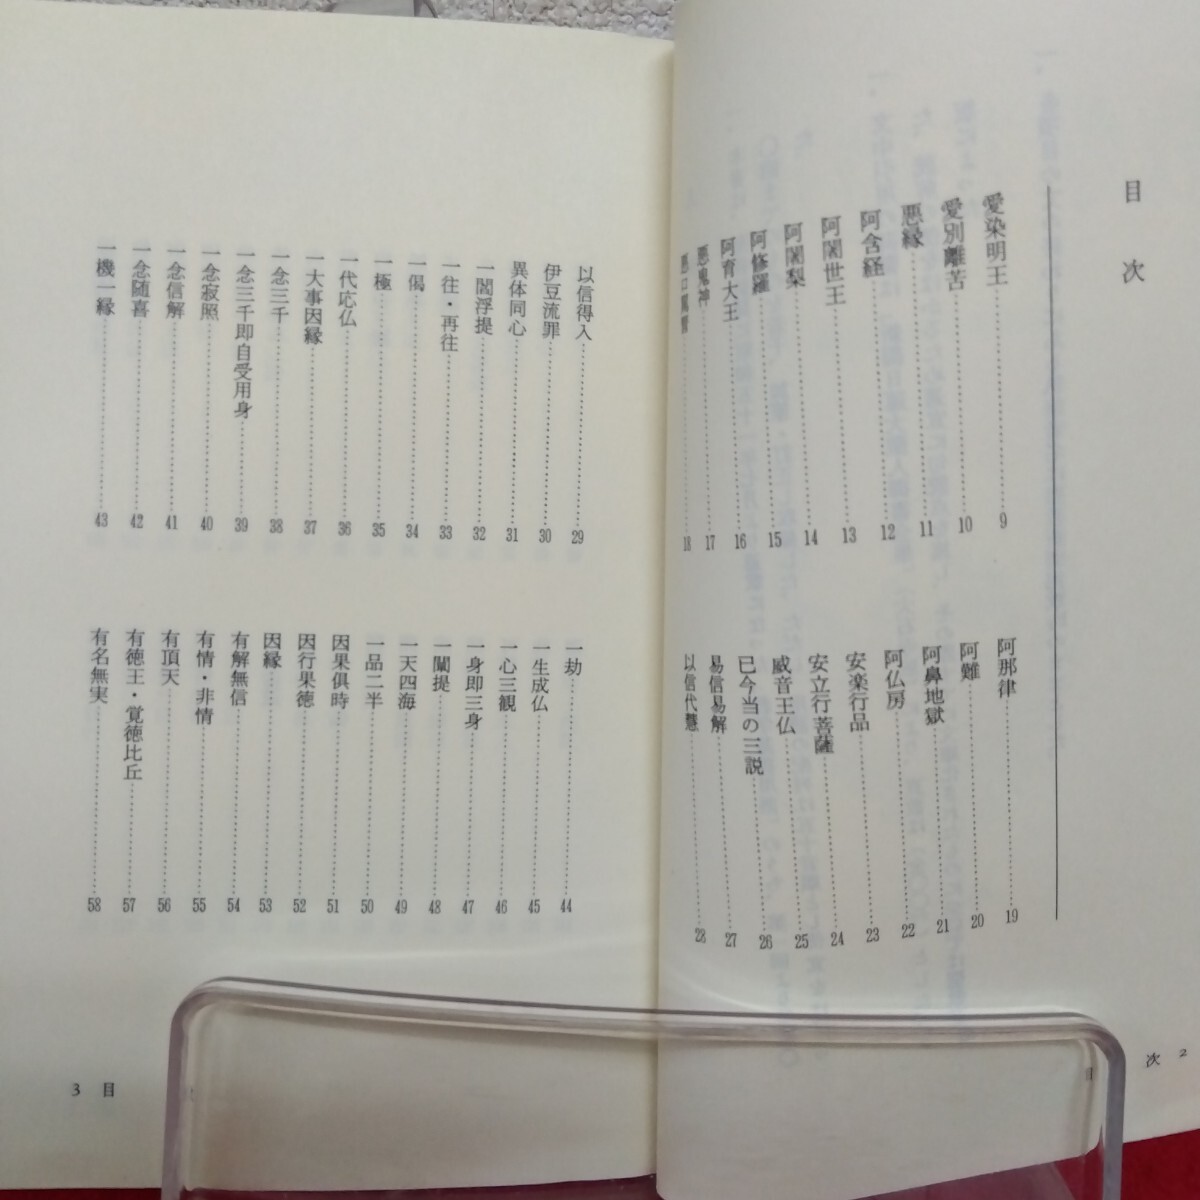 目次
愛染明王 9
愛別離苦 10
悪縁 11
阿含経 12
阿闍世王 13
阿闍梨 14
阿修羅 15
阿育大王 16
悪鬼神 17
悪口罵詈 18
阿那律 19
阿難 20
阿鼻地獄 21
阿仏房 22
安楽行品 23
安立行菩薩 24
威音王仏 25
已今当の三説 26
易信易解 27
以信代慧 28
目次 2
以信得入 29
伊豆流罪 30
異体同心 31
一閻浮提 32
一往・再往 33
一偈 34
一極 35
一代応仏 36
一大事因縁 37
一念三千 38
一念三千即自受用身 39
一念寂照 40
一念信解 41
一念随喜 42
一機一縁 43
一劫 44
一生成仏 45
一心三観 46
一身即三身 47
一闡提 48
一天四海 49
一品二半 50
因果倶時 51
因行果徳 52
因縁 53
有解無信 54
有情・非情 55
有頂天 56
有徳王・覚徳比丘 57
有名無実 58
3 目